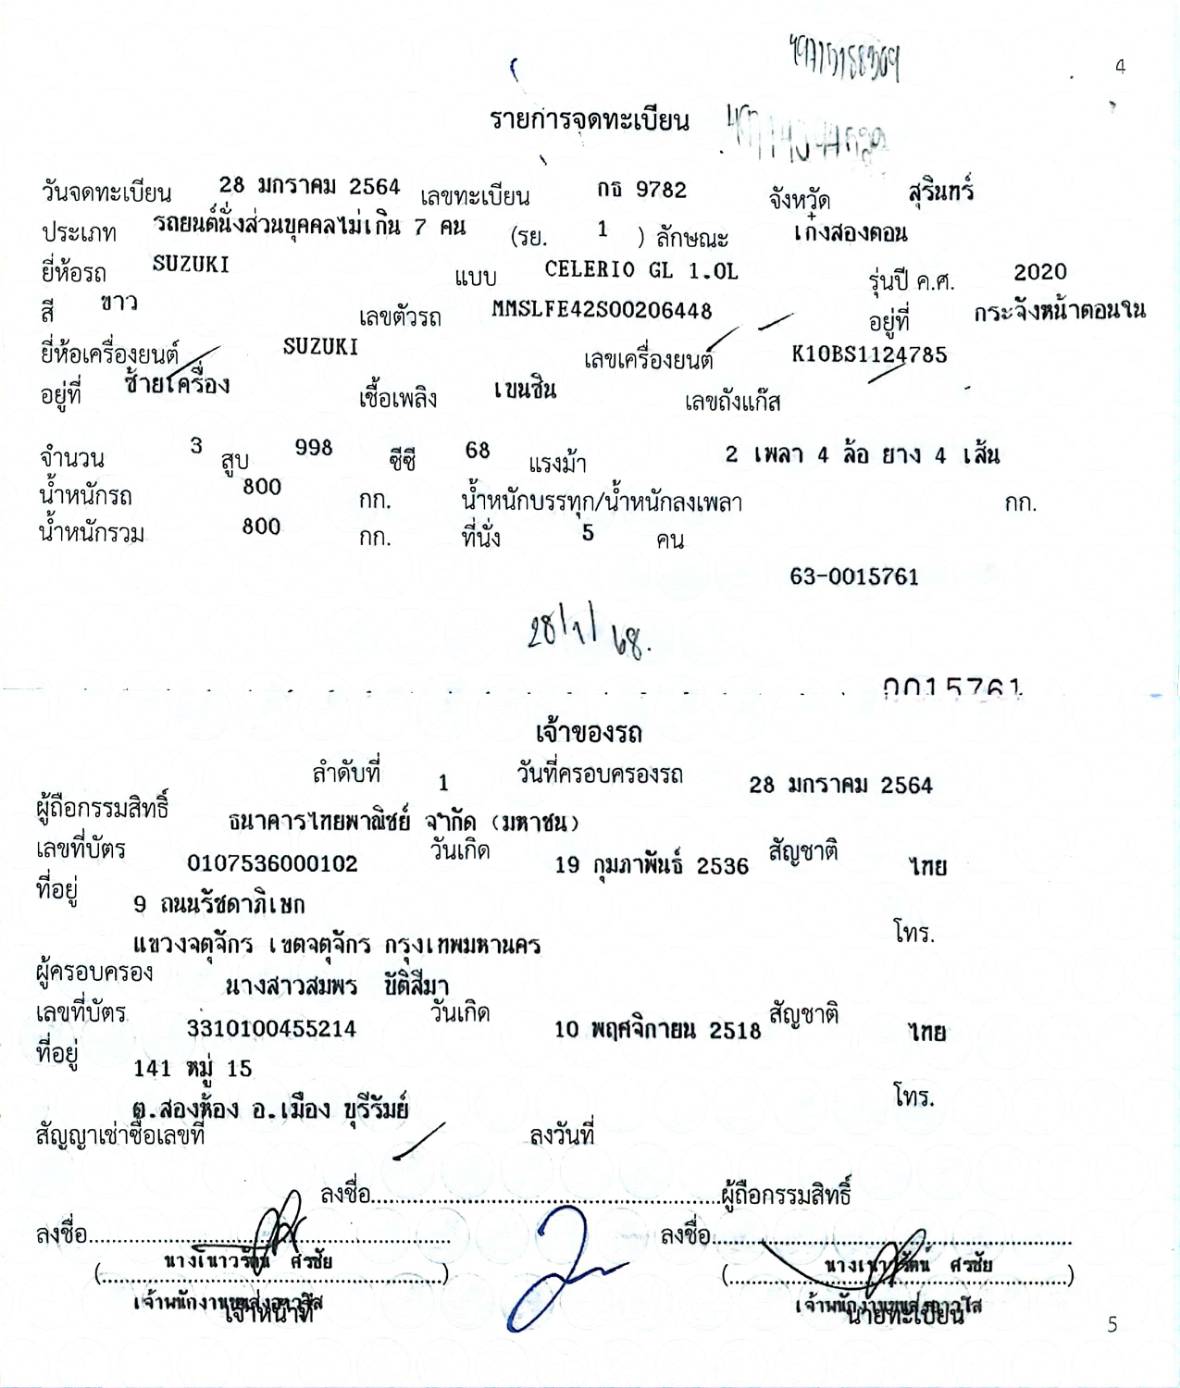 4
รายการจดทะเบียน
วันจดทะเบียน 28 มกราคม 2564 เลขทะเบียน กธ 9782 จังหวัด สุรินทร์
ประเภท รถยนต์นั่งส่วนบุคคลไม่เกิน 7 คน (รย. 1 ) ลักษณะ เก๋งสองตอน
ยี่ห้อรถ SUZUKI แบบ CELERIO GL 1.0L รุ่นปี ค.ศ. 2020
สี ขาว เลขตัวรถ MMSLFE42S00206448 อยู่ที่ กระจังหน้าตอนใน
ยี่ห้อเครื่องยนต์ SUZUKI เลขเครื่องยนต์ K10BS1124785
อยู่ที่ ซ้ายเครื่อง เชื้อเพลิง เบนซิน เลขถังแก๊ส -
จำนวน 3 สูบ 998 ซีซี 68 แรงม้า 2 เพลา 4 ล้อ ยาง 4 เส้น
น้ำหนักรถ 800 กก. น้ำหนักบรรทุก/น้ำหนักลงเพลา กก.
น้ำหนักรวม 800 กก. ที่นั่ง 5 คน
63-0015761
28/1/68.
0015761
เจ้าของรถ
ลำดับที่ 1 วันที่ครอบครองรถ 28 มกราคม 2564
ผู้ถือกรรมสิทธิ์ ธนาคารไทยพาณิชย์ จำกัด (มหาชน)
เลขที่บัตร 0107536000102 วันเกิด 19 กุมภาพันธ์ 2536 สัญชาติ ไทย
ที่อยู่ 9 ถนนรัชดาภิเษก
แขวงจตุจักร เขตจตุจักร กรุงเทพมหานคร โทร.
ผู้ครอบครอง นางสาวสมพร ขัติสีมา
เลขที่บัตร 3310100455214 วันเกิด 10 พฤศจิกายน 2518 สัญชาติ ไทย
ที่อยู่ 141 หมู่ 15
ต.สองห้อง อ.เมือง บุรีรัมย์ โทร.
สัญญาเช่าซื้อเลขที่ ลงวันที่
ลงชื่อ..........ผู้ถือกรรมสิทธิ์
ลงชื่อ.......... ลงชื่อ..........
(นางเนาวรัตน์ ศรชัย) (นางเนาวรัตน์ ศรชัย)
เจ้าพนักงานขนส่งอาวุโส เจ้าพนักงานขนส่งอาวุโส
เจ้าหน้าที่ นายทะเบียน
5